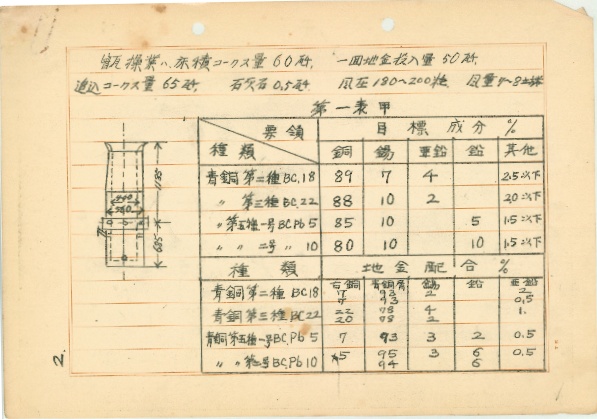 操業ハ床積コークス量 60瓩. 一回地金投入量 50瓩.
追込コークス量 65瓩 石灰石 0.5瓩 風圧 180~200粍 風量 4~8
第一表甲
要領 目標成分 %
種類 銅 錫 亜鉛 鉛 其他
青銅第二種 BC.18 89 7 4 2.5以下
〃 第三種 BC.22 88 10 2 2.0以下
〃 第五種一号 BC.Pb 5 85 10 5 1.5以下
〃 〃 二号 〃 10 80 10 10 1.5以下
種類 地金配合 %
古銅 青銅屑 錫 鉛 亜鉛
青銅第二種 BC18 7 93 2 2
7 93 0.5
青銅第三種 BC22 22 78 4 1.
20 78 2
青銅第五種一号 BC.Pb 5 7 93 3 2 0.5
〃 〃 第二号 BC.Pb 10 5 95 3 6 0.5
94 6
1180
440
760
685
2.